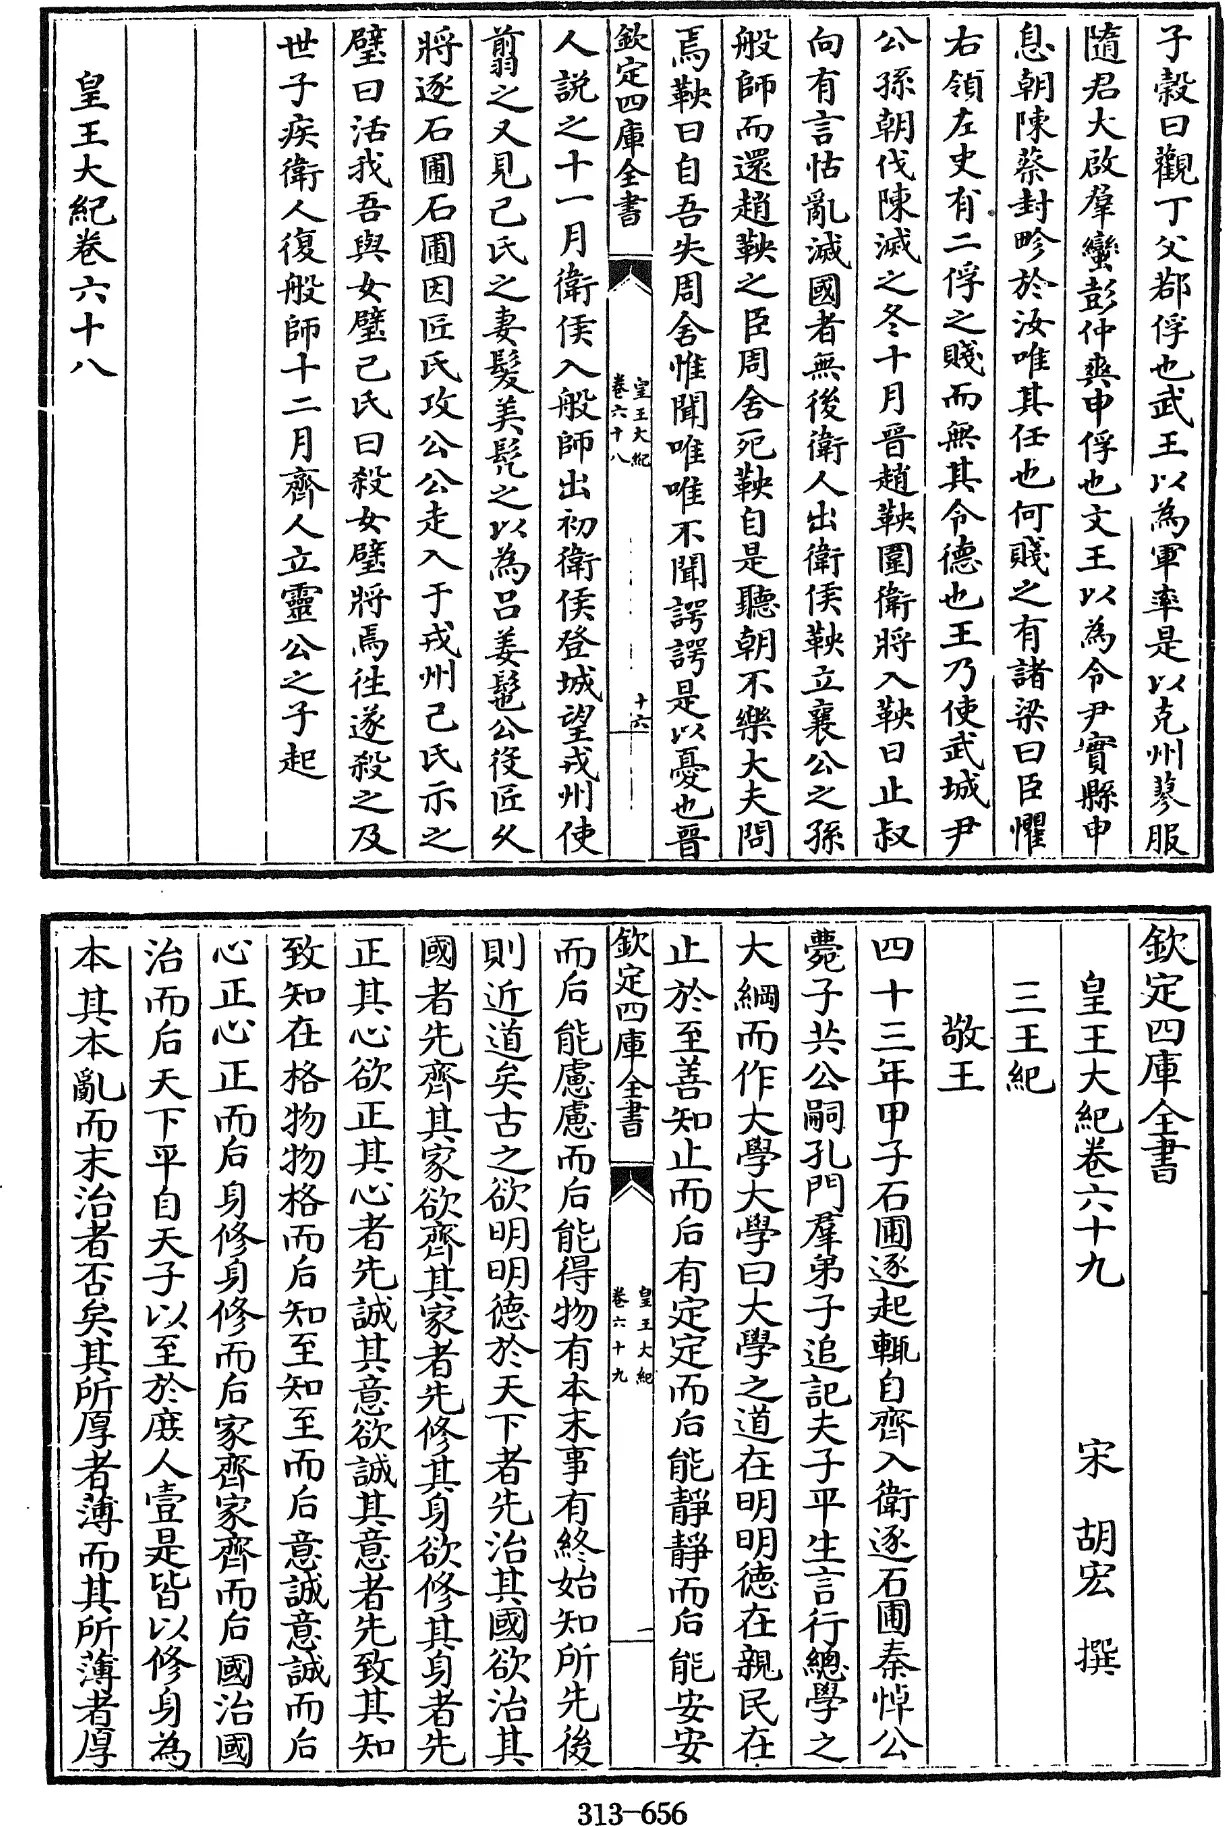 子穀曰觀丁父鄀俘也武王以為軍率是以克州蓼服
隨君大啟羣蠻彭仲爽申俘也文王以為令尹實縣申
息朝陳蔡封畛於汝唯其任也何賤之有諸梁曰臣懼
右領左史有二俘之賤而無其令德也王乃使武城尹
公孫朝伐陳滅之冬十月晉趙鞅圍衛將入鞅曰止叔
向有言怙亂滅國者無後衛人出衛侯鞅立襄公之孫
般師而還趙鞅之臣周舍死鞅自是聽朝不樂大夫問
焉鞅曰自吾失周舍惟聞唯唯不聞諤諤是以憂也晉
欽定四庫全書
皇王大紀
卷六十八
十六
人説之十一月衛侯入般師出初衛侯登城望戎州使
翦之又見己氏之妻髮美髠之以為呂姜髢公役匠久
將逐石圃石圃因匠氏攻公公走入于戎州己氏示之
璧曰活我吾與女璧己氏曰殺女璧將焉往遂殺之及
世子疾衛人復般師十二月齊人立靈公之子起
皇王大紀卷六十八
欽定四庫全書
皇王大紀卷六十九 宋 胡宏 撰
三王紀
敬王
四十三年甲子石圃逐起輒自齊入衛逐石圃秦悼公
薨子共公嗣孔門羣弟子追記夫子平生言行總學之
大綱而作大學大學曰大學之道在明明德在親民在
止於至善知止而后有定定而后能靜靜而后能安安
欽定四庫全書
皇王大紀
卷六十九
一
而后能慮慮而后能得物有本末事有終始知所先後
則近道矣古之欲明明德於天下者先治其國欲治其
國者先齊其家欲齊其家者先修其身欲修其身者先
正其心欲正其心者先誠其意欲誠其意者先致其知
致知在格物物格而后知至知至而后意誠意誠而后
心正心正而后身修身修而后家齊家齊而后國治國
治而后天下平自天子以至於庶人壹是皆以修身為
本其本亂而末治者否矣其所厚者薄而其所薄者厚
313-656